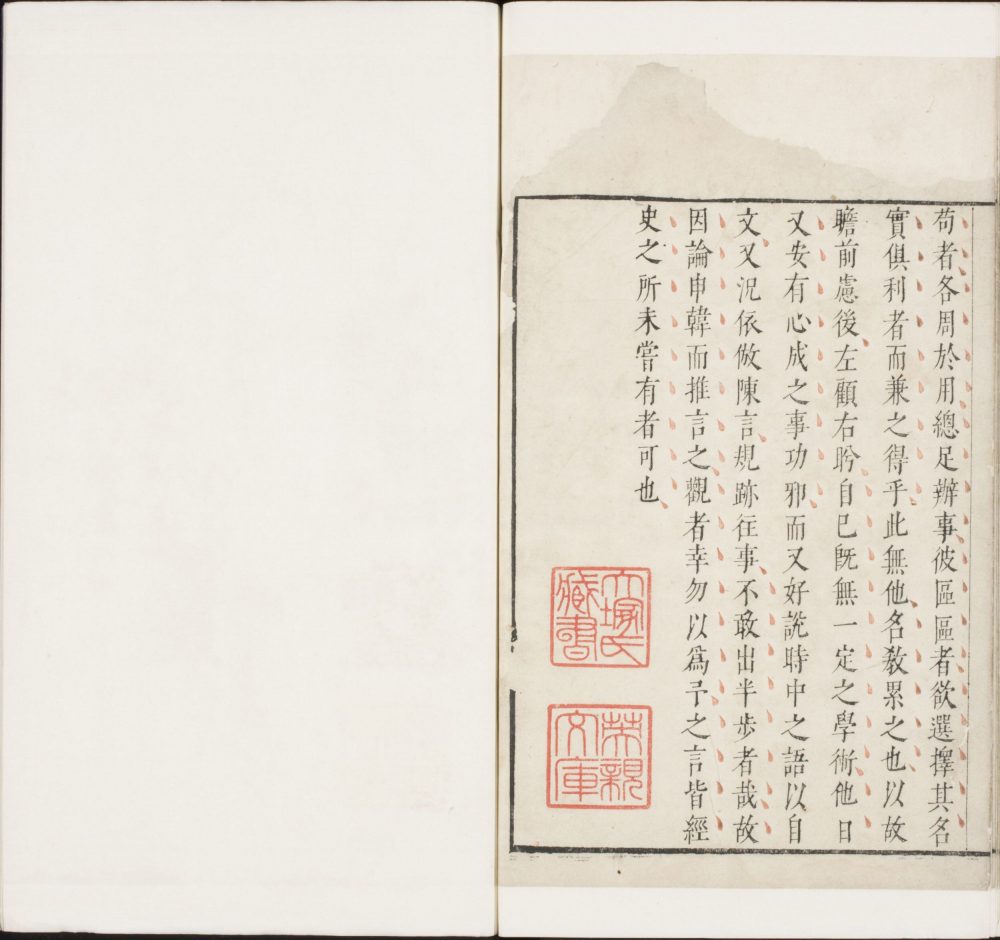 苟者各周於用總足辦事彼區區者欲選擇其名
實俱利者而兼之得乎此無他名教累之也以故
瞻前慮後左顧右盻自已旣無一定之學術他日
又安有必成之事功邪而又好說時中之語以自
文又況依倣陳言規跡徃事不敢出半步者哉故
因論申韓而推言之觀者幸勿以爲予之言皆經
史之所未嘗有者可也
大塚氏
藏書
荣親
文庫